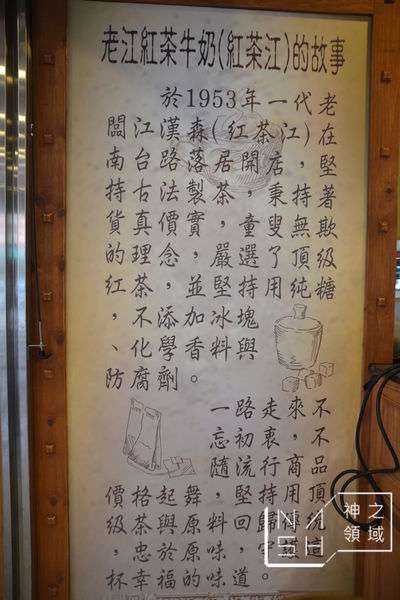 老江紅茶牛奶(紅茶江)的故事
於1953年一代老
闆江漢森(紅茶江)在
南台路落居開店，堅
持古法製茶，秉持著
貨真價實，童叟無欺
的理念，嚴選了頂級
紅茶，並堅持用純糖
，不添加冰塊
、化學香料與
防腐劑。
一路走來，不
忘初衷，不
隨流行商品
價格起舞，堅持用頂
級茶與原料，回歸傳統
，忠於原味，守護這
杯幸福的味道。
神之
領域